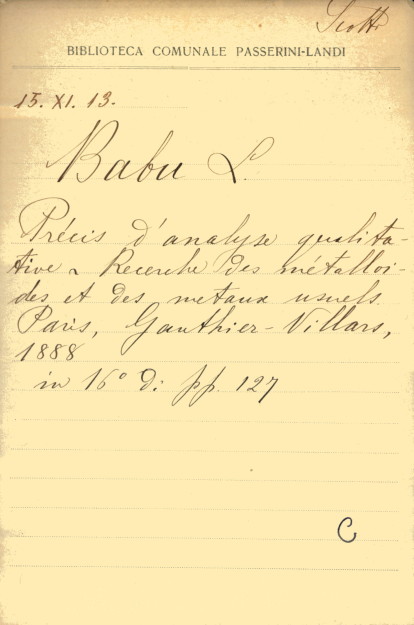 Scotti
BIBLIOTECA COMUNALE PASSERINI-LANDI
15. XI. 13.
Babu L.
Précis d'analyse qualita-
tive ~ Recerche des métalloi-
des et des metaux usuels.
Paris, Gauthier-Villars,
1888
in 16° di pp. 127
C